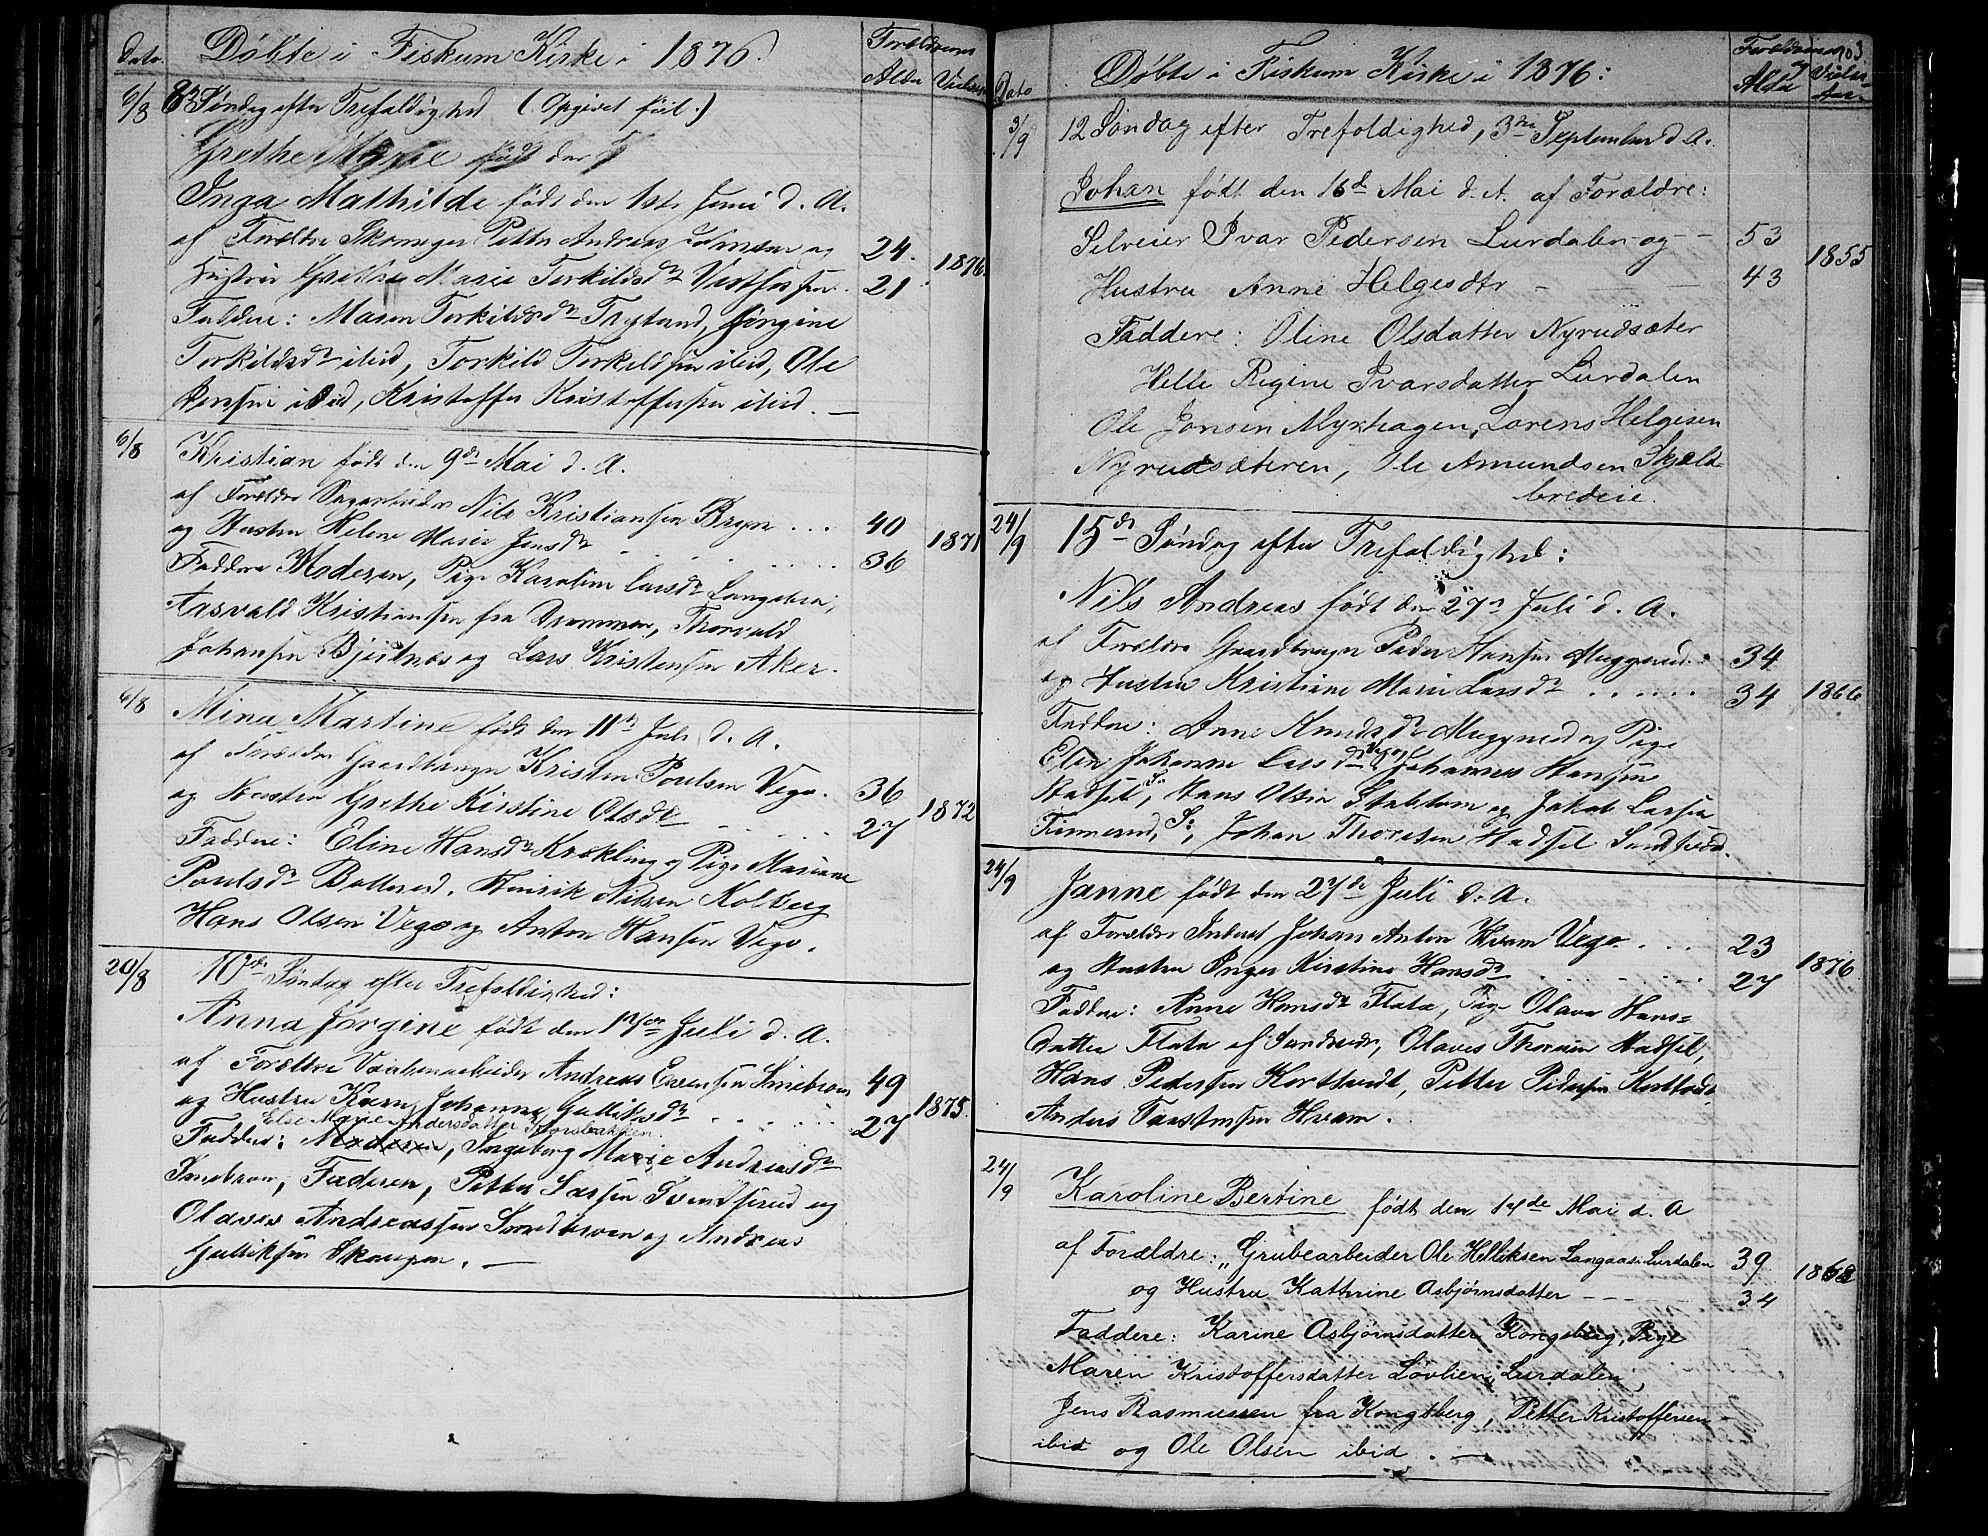 Dato. Døbte i Fiskum Kirke i 1876. Forældrenes Alder Vielses
6/8 8de Søndag efter Trefoldighed (Opgivet feil.)
Grethe Marie født den
Inga Mathilde født den 1ste Juni d. A.
af Forældre Skomager Petter Andreas Jonsen og 24. 1876
Hustru Grethe Marie Torkildsdr Vestfossen. 21
Faddere: Maren Torkildsdr Trytand, Jørgine
Torkildsdr ibid, Torkild Torkildsen ibid, Ole
Jensen ibid, Kristoffer Kristoffersen ibid. —
6/8 Kristian født den 9de Mai d. A.
af Forældre Sagarbeider Nils Kristiansen Bryn ... 40 1871
og Hustru Helene Marie Jensdr 36
Faddere Moderen, Pige Karoline Larsdr Langebru,
Aasvald Kristiansen fra Drammen, Thorvald
Johansen Bjerknæs og Lars Kristensen Aker.
6/8 Mina Martine født den 11te Juli d. A.
af Forældre Gaardbruger Kristen Poulsen Vego. 36 1872
og Hustru Grethe Kirstine Olsdr 27
Faddere: Eline Hansdr Krekling og Pige Mariane
Poulsdr Bollerud, Henrik Nilsen Kolberg
Hans Olsen Vego og Anton Hansen Vego.
20/8 10de Søndag efter Trefoldighed:
Anna Jørgine født den 17de Juli d. A.
af Forældre Væxlenarbeider Andreas Evensen Smebroen 49 1875.
og Hustru Karen Johanne Gulliksdr 27
Else Marie Andersdatter
Faddere: Moderen, Ingeborg Marie Andreasdr
Smebroen, Faderen, Petter Larsen Svendserud og
Olaves Andreassen Smedbroen og Andreas
Gulliksen Skougen. —
Dato Døbte i Fiskum Kirke i 1876: Forældrenes Alder Vielses Aar. 103
3/9 12 Søndag efter Trefoldighed, 3die September d A.
Johan født den 16de Mai d. A. af Forældre:
Selveier Ivar Pedersen Lurdalen og - 53 1855
Hustru Anne Helgesdtr - 43
Faddere: Oline Olsdatter Nyrudsæter
Helle Regine Ivarsdatter Lurdalen
Ole Jonsen Myrhagen, Lorens Helgesen
Nyrudsæteren, Ole Amundsen Skjæld-
bredeie.
24/9 15de Søndag efter Trefoldighed:
Nils Andreas født den 27de Juli d. A.
af Forældre Gaardbruger Peder Hansen Muggerud. 34
og Hustru Kristiane Marie Larsdr ...... 34 1866
Faddere: Anne Knudsdr Muggerud og Pige
Elen Johanne Larsdr Vego, Johannes Hansen
Stadsel, S: Hans Olsen Stablum og Jakob Larsen
Finnerud, S:, Johan Thoresen Hadsel Sandsvær.
24/9 Janne født den 27de Juli d. A.
af Forældre Inderst Johan Anton Hvam Vego ... 23 1876
og Hustru Inger Kirstine Hansdr 27
Faddere: Anne Hansdr Flata, Pige Olava Hans=
datter Flata af Sandsvær, Olaves Thoresen Hadsel,
Hans Pedersen Korttvedt, Petter Pedersen Korttvedt
Anders Taastensen Hvam.
24/9 Karoline Bertine født den 14de Mai d. A
af Forældre: "Grubearbeider Ole Helliksen Langaas Lurdalen 39 1868
og Hustru Kathrine Asbjørnsdatter - - - 34
Faddere: Karine Asbjørnsdatter Kongsberg, Pige
Maren Kristoffersdatter Løvlien, Lurdalen,
Jens Rasmussen fra Kongsberg, Petter Kristoffersen -
ibid og Ole Olsen ibid. —